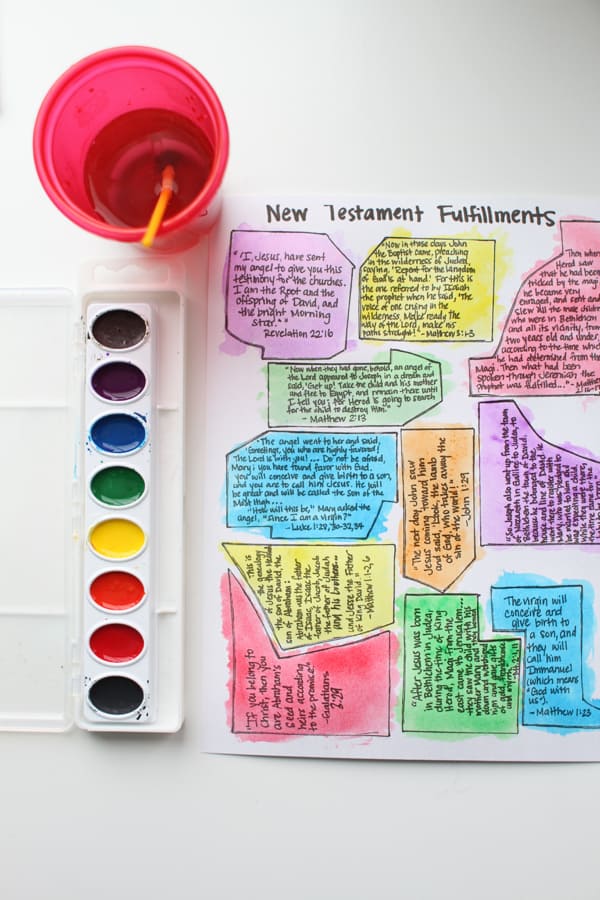 New Testament Fulfillments
"'I, Jesus, have sent
my angel to give you this
testimony for the churches.
I am the Root and the
offspring of David, and
the bright Morning
Star.'"
Revelation 22:16
"Now in those days John
the Baptist came, preaching
in the wilderness of Judea,
saying, 'Repent for the kingdom
of God is at hand.' For this is
the one referred to by Isaiah
the prophet when he said, 'The
voice of one crying in the
wilderness, Make ready the
way of the Lord, make his
paths straight!' - Matthew 3:1-3
Then when
Herod saw
that he had been
tricked by the magi,
he became very
enraged, and sent and
slew all the male children
who were in Bethlehem
and all its vicinity, from
two years old and under,
according to the time which
he had determined from the
Magi. Then what had been
spoken through Jeremiah the
Prophet was fulfilled..." - Matthew
2:16-
"Now when they had gone, behold, an angel of
the Lord appeared to Joseph in a dream and
said, 'Get up! Take the child and his mother
and flee to Egypt, and remain there until
I tell you; for Herod is going to search
for the child to destroy Him.'"
- Matthew 2:13
"The angel went to her and said,
'Greetings, you who are highly favored!
The Lord is with you!... Do not be afraid,
Mary; you have found favor with God.
You will conceive and give birth to a son,
and you are to call him Jesus. He will
be great and will be called the Son of the
Most High...'
"How will this be," Mary asked the
angel, "since I am a virgin?"
- Luke 1:28, 30-32, 34
"The next day John saw
Jesus coming toward him
and said, 'Look, the Lamb
of God, who takes away the
sin of the world!'"
- John 1:29
"So Joseph also went up from the town
of Nazareth in Galilee to Judea, to
Bethlehem the town of David,
because he belonged to the
house and line of David. He
went there to register with
Mary, who was pledged to
be married to him and
was expecting a child.
While they were there,
the time came for the
This is
the genealogy
of Jesus the Messiah
the son of David, the
son of Abraham:
Abraham was the father
of Isaac, Isaac the
father of Jacob, Jacob
the father of Judah
and his brothers...
and Jesse the father
of King David."
- Matthew 1:1-2, 6
"If you belong to
Christ, then you
are Abraham's
seed and
heirs according
to the promise."
- Galatians
3:29
"After Jesus was born
in Bethlehem in Judea,
during the time of King
Herod, Magi from the
east came to Jerusalem...
they saw the child with his
mother Mary, and they bowed
down and worshiped
him and gave gifts
of gold, frankincense
and myrrh."
The virgin will
conceive and
give birth to
a son, and
they will
call him
Immanuel
(which means
"God with
us").
- Matthew 1:23